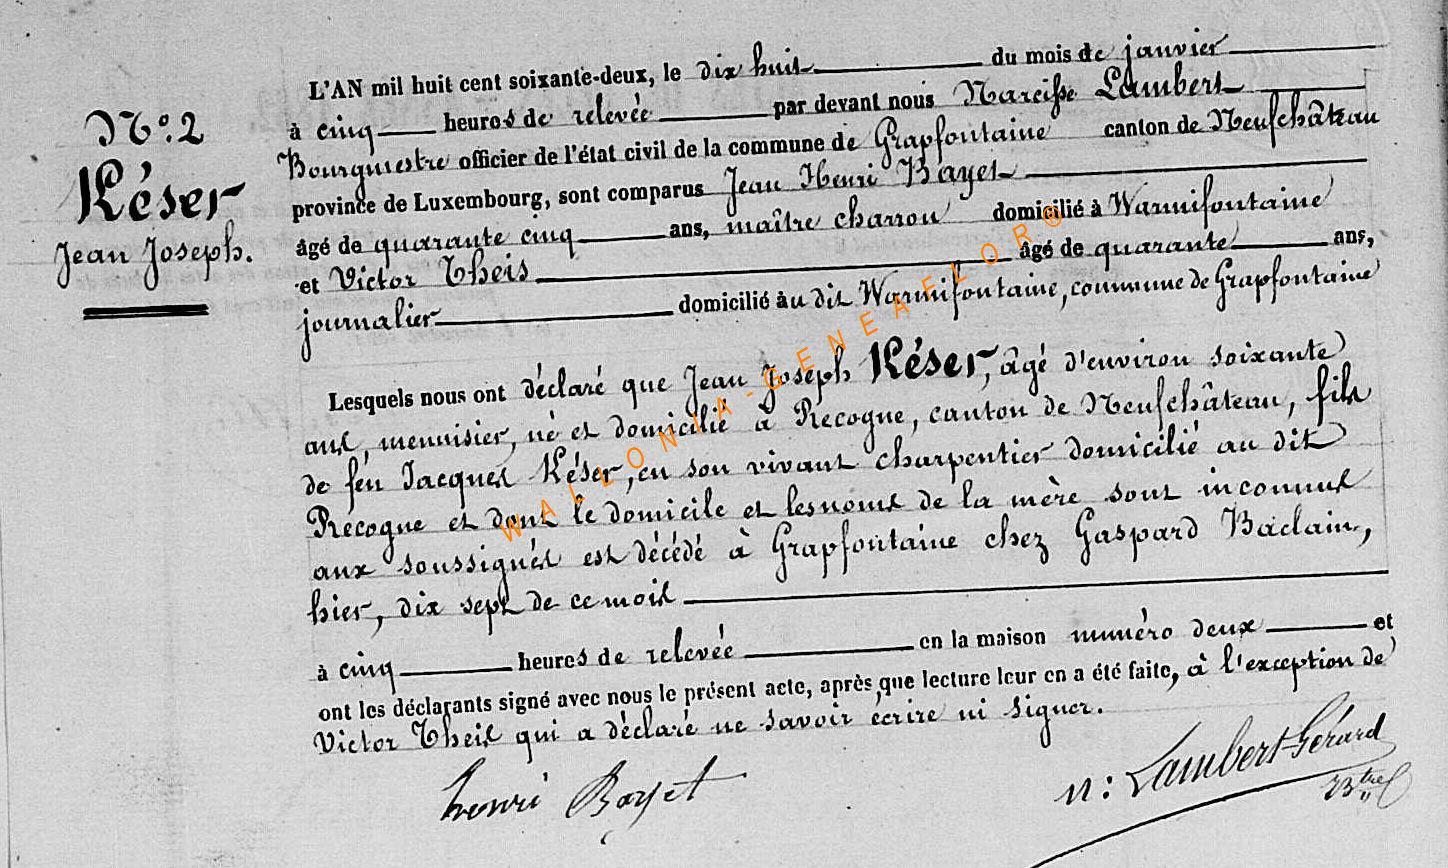 N.º 2
Késer
Jean Joseph.
L'AN mil huit cent soixante-deux, le dix huit du mois de janvier
à cinq heures de relevée par devant nous Narcisse Lambert
Bourgmestre officier de l'état civil de la commune de Grapfontaine canton de Neufchâteau
province de Luxembourg, sont comparus Jean Henri Bayet
âgé de quarante cinq ans, maître charron domicilié à Warmifontaine
et Victor Theis âgé de quarante ans,
journalier domicilié àu dit Warmifontaine, commune de Grapfontaine
Lesquels nous ont déclaré que Jean Joseph Késer, âgé d'environ soixante
ans, menuisier, né et domicilié à Recogne, canton de Neufchâteau, fils
de feu Jacques Késer, en son vivant charpentier domicilié au dit
Recogne et dont le domicile et les noms de la mère sont inconnus
aux soussignés est décédé à Grapfontaine chez Gaspard Baclain,
hier, dix sept de ce mois
à cinq heures de relevée en la maison numéro deux et
ont les déclarants signé avec nous le présent acte, après que lecture leur en a été faite, à l'exception de
Victor Theis qui a déclaré ne savoir écrire ni signer.
henri Bayet
N: Lambert-Gérard
Btre
WALLONIA-GENEAFLOR®